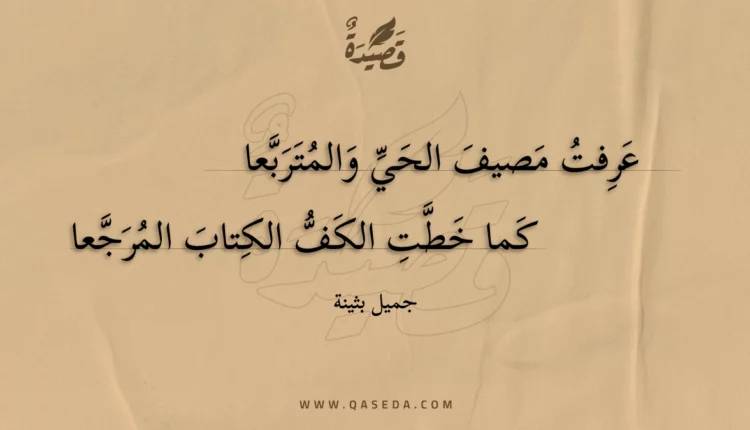 قَصِيدَةٌ
عَرِفتُ مَصيفَ الحَيِّ وَالمُتَرَبَّعا
كَما خَطَّتِ الكَفُّ الكِتابَ المُرَجَّعا
جميل بثينة
WWW.QASEDA.COM